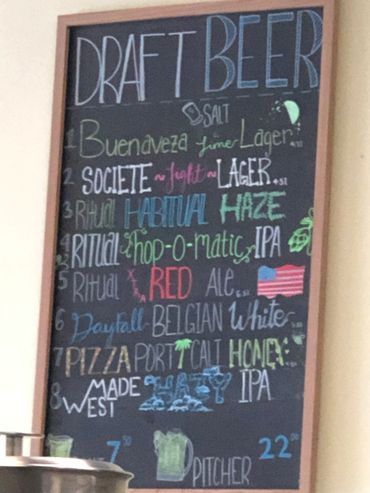 DRAFT BEER
SALT
1 Buenaveza Lime Lager
2 SOCIETE ~light~ LAGER
3 Ritual HABITUAL HAZE
4 RITUAL hop-o-matic IPA
5 Ritual RED Ale
6 Dayfall BELGIAN White
7 PIZZA PORT CALI HONEY
8 MADE WEST HAZY IPA
7.50 PITCHER 22.00